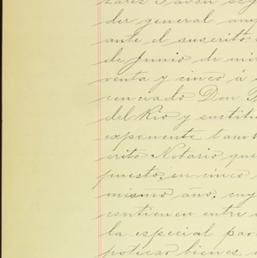 der general am
ante el suscrito
de Junio de mi
venta y cinco á
cenciado Don
del Rio y sustitu
exponente tam
crito Notario que
puesto, en cinco
mismo año, cuy
contienen entre
la especial par
potecar bienes